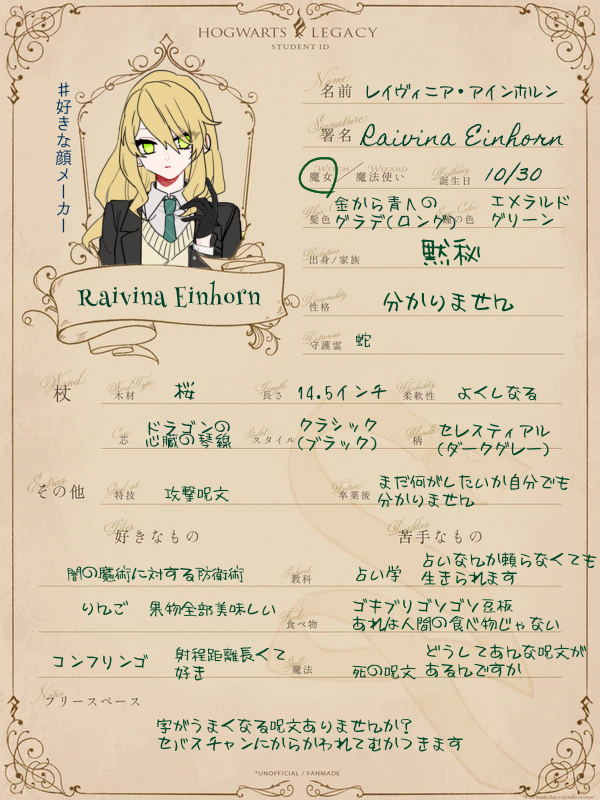 HOGWARTS LEGACY
STUDENT ID
#好きな顔メーカー
Name
名前 レイヴィニア・アインホルン
Signature
署名 Raivina Einhorn
WITCH WIZARD Birthday
魔女／魔法使い 誕生日 10/30
髪色 金から青への
グラデ(ロング) 瞳の色 エメラルド
グリーン
出身/家族 黙秘
Raivina Einhorn
Personality
性格 分かりません
Patronus
守護霊 蛇
Wand Wood Type Length Flexibility
杖 木材 桜 長さ 14.5インチ 柔軟性 よくしなる
Core Style Handle
芯 ドラゴンの
心臓の琴線 スタイル クラシック
(ブラック) 柄 セレスティアル
(ダークグレー)
Extras Good at Future
その他 特技 攻撃呪文 卒業後 まだ何がしたいか自分でも
分かりません
Likes Dislikes
好きなもの 苦手なもの
Subject
闇の魔術に対する防衛術 教科 占い学 占いなんか頼らなくても
生きられます
Food
りんご 果物全部美味しい 食べ物 ゴキブリゴソゴソ豆板
あれは人間の食べ物じゃない
Spell
コンフリンゴ 射程距離長くて
好き 魔法 死の呪文 どうしてあんな呪文が
あるんですか
Notes
フリースペース
字がうまくなる呪文ありませんか?
セバスチャンにからかわれてむかつきます
*UNOFFICIAL / FANMADE